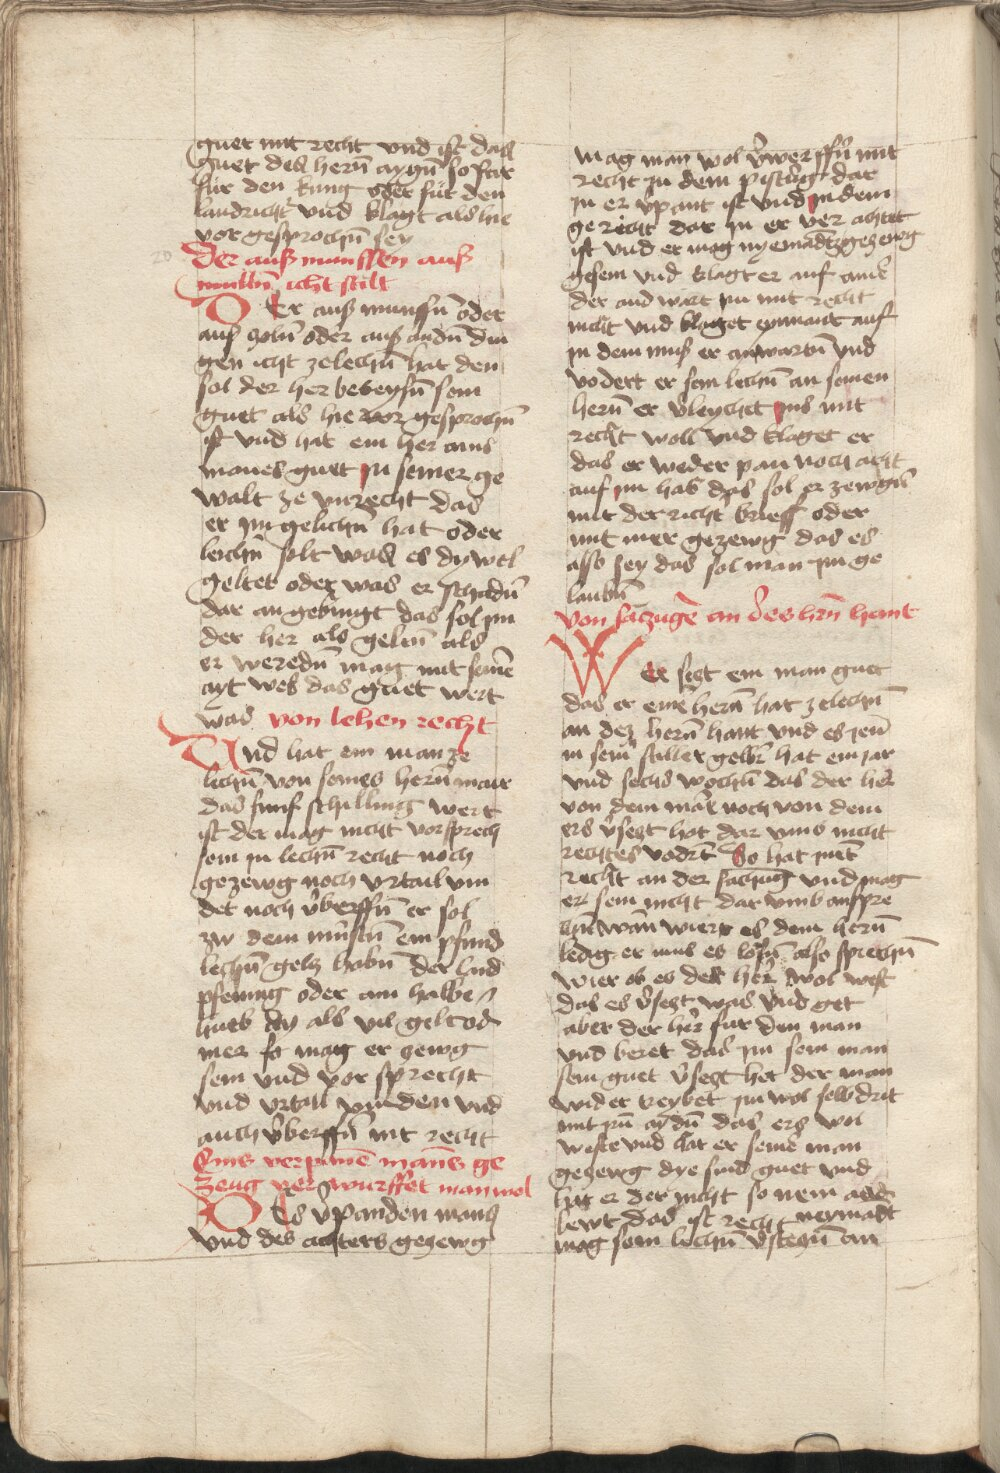 guet mit recht vnd ist das
guet des herñ aygñ so far
für den kung oder für den
landricht vnd klagt als hie
vor gesprochñ sey
20
Der auß munssen auß
mullñ icht stilt
Der auß munssñ oder
auß zolñ oder auß andñ din
gen icht ze lechñ hat den
sol der her beweysñ sein
guet als hie vor gesprochñ
ist vnd hat ein her ains
manes guet in seiner ge
walt ze vnrecht das
er im gelichñ hat oder
leichñ solt was es dy weil
geltet oder was er schadñ
dar an gebingt das sol im
der her als geltñ als
er weredñ mag mit seinē
ayt wes das guet wert
was von lehen recht
Vnd hat ein man ze
lechñ von seines herñ mair
das funf schilling wert
ist der mag nicht vorsprech
sein in lechñ recht noch
gezewg noch vrtail vin
det noch v̊berffñ er sol
zw dem minstñ ein pfund
lechñ geltz habñ der lnd
pfening oder ain halbe
hueb dy als vil gelt od
mer so mag er zewg
sein vnd vor sprecht
vnd vrtail vinden vnd
auch v̊berffñ mit recht
Eins verpantē mans ge
zeug ver wurffet man wol
Des v̊panden mans
vnd des achters gezewg
mag man wol v̊werffñ mit
recht in dem pistug dar
in er v̊pant ist vnd in dem
gericht dar in er ver achtet
ist vnd er mag nyemādtz gezewg
gesein vnd klagt er auf ainē
der and wart im mit recht
nicht vnd klaget eymant auf
in dem muß er antwartñ vnd
vodert er sein lechñ an seinen
herñ er v̊leychet ims mit
recht woll vnd klaget er
das er weder pan noch acht
auf im hab das sol er zewgñ
mit der richt brieff oder
mit mer gezewg das es
also sey das sol man im ge
laubñ
Von satzugē an des hrñ hant
Wer setzt ein man guet
das er eins herñ hat ze lechñ
an dez herñ hant vnd es jenñ
in sein stiller gewer hat ein jar
vnd sechs wochñ das der her
von dem man noch von dem
ers v̊setzt hot dar vmb nicht
rechtes vodrt So hat jener
recht an der satzung vnd mag
er sein nicht dar vmb anspre
chñ wan wiert es dem herñ
ledig er mus es losñ also sprechñ
wier ob es der her wol west
das es v̊setzt was vnd get
aber der her fur den man
vnd beret das im sein man
sein guet v̊setzt het der man
wider treybet in wol selbdrit
mit irñ aydñ das ers wol
weste vnd hat er seine man
gezewg dye sind guet vnd
hat er der nicht so nem ander
lewt das ist recht neymādt
mag sein lechñ v̊stezñ an